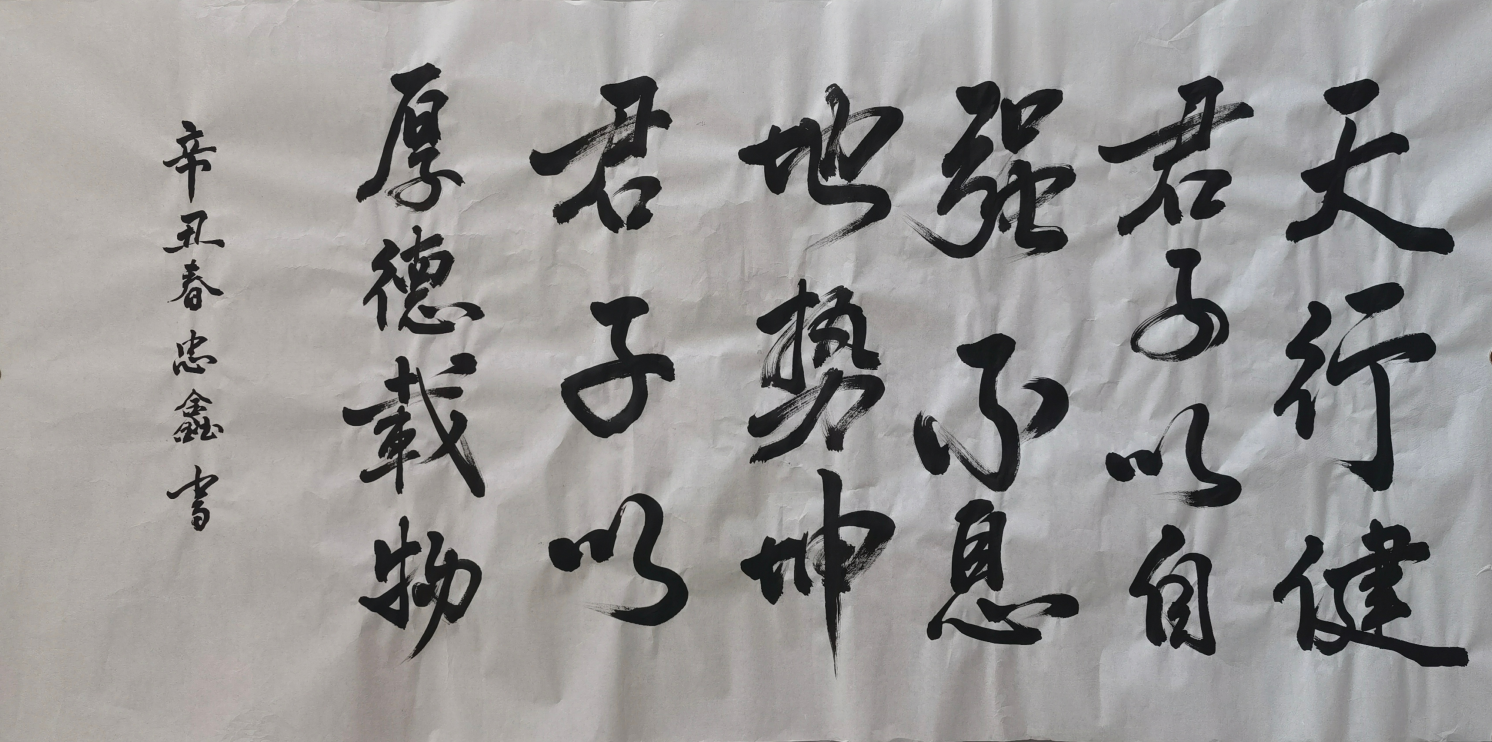 天行健
君子以自
强不息
地势坤
君子以
厚德载物
辛丑春忠鑫书